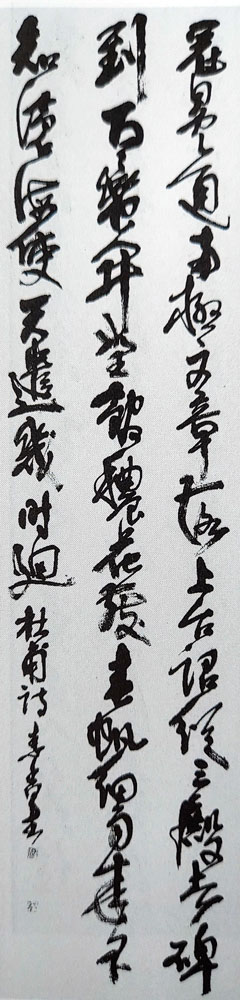 冠冕通南極文章落上台詔從三殿去碑
到百蠻開野館穠花發春帆細雨來不
知滄海使天遣幾時迴 杜甫詩 書